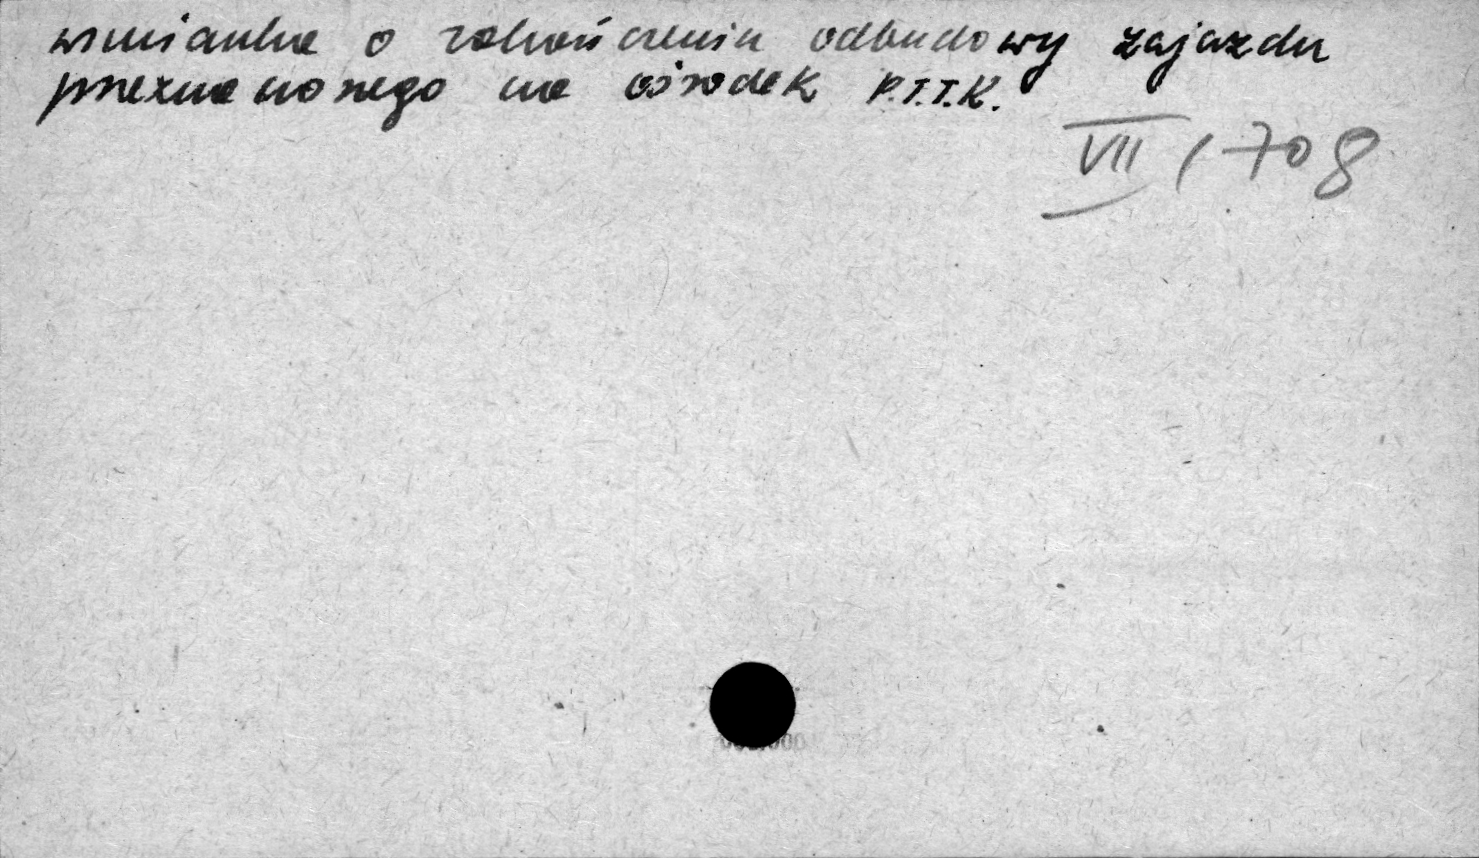 wzmianka o zakończeniu odbudowy zajazdu
przeznaczonego na ośrodek P.T.T.K.
VII / 708